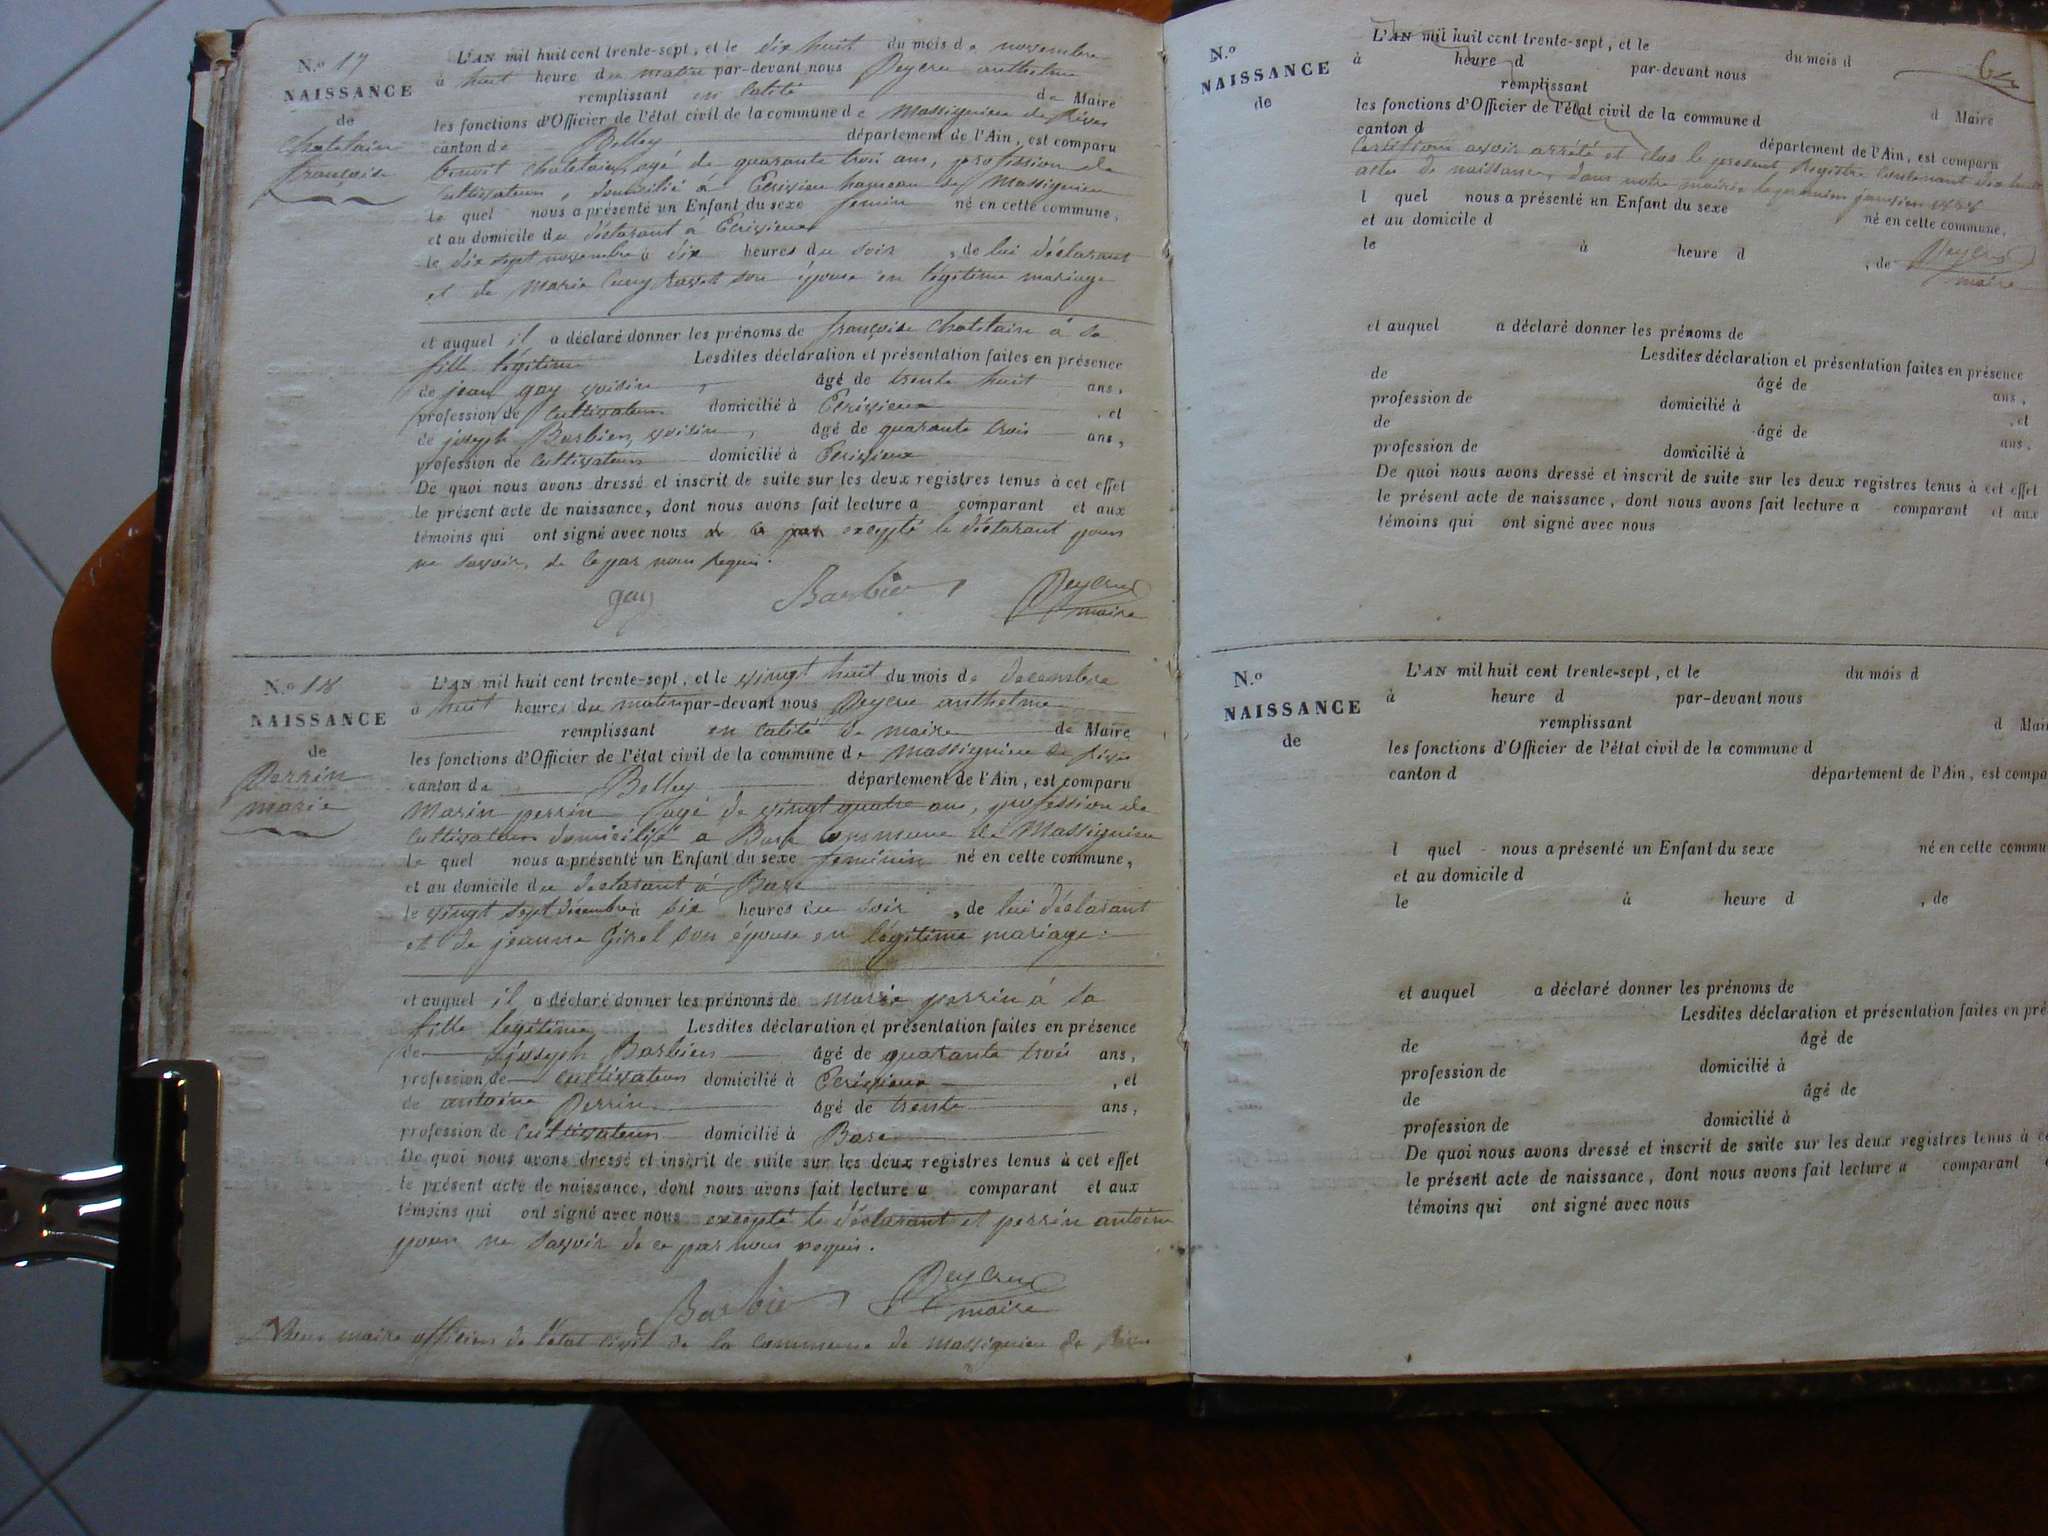 N.º 17
NAISSANCE
de
Chatelain
françoise
L'AN mil huit cent trente-sept, et le dix huit du mois de novembre
à huit heure du matin par-devant nous Peycru anthelme
remplissant en calité de Maire
les fonctions d'Officier de l'état civil de la commune de Massignieu de Rives
canton de Belley département de l'Ain, est comparu
benoit chatelain, agé de quarante trois ans, profession de
Cultivateur, domicilié à Ecrivieu hameau de Massignieu
le quel nous a présenté un Enfant du sexe femin né en cette commune,
et au domicile du déclarant à Ecrivieux
le dix sept novembre à dix heures du soir, de lui déclarant
et de marie son épouse en légitime mariage
et auquel il a déclaré donner les prénoms de françoise chatelain à sa
fille légitime Lesdites déclaration et présentation faites en présence
de jean gay voisin, âgé de trente huit ans,
profession de Cultivateur domicilié à Ecrivieux, et
de joseph Barbier, voisin, âgé de quarante trois ans,
profession de Cultivateur domicilié à Ecrivieux
De quoi nous avons dressé et inscrit de suite sur les deux registres tenus à cet effet
le présent acte de naissance, dont nous avons fait lecture a comparant et aux
témoins qui ont signé avec nous excepté le déclarant pour
ne savoir, de ce par nous requis.
gay Barbier Peycru
maire
N.º 18
NAISSANCE
de
Perrin
marie
L'AN mil huit cent trente-sept, et le vingt huit du mois de decembre
à huit heures du matin par-devant nous Peycru anthelme
remplissant en calité de maire de Maire
les fonctions d'Officier de l'état civil de la commune de massignieu de rives
canton de Belley département de l'Ain, est comparu
Marin perrin agé de vingt quatre ans, profession de
Cultivateur domicilié a commune de Massignieu
le quel nous a présenté un Enfant du sexe feminin né en cette commune,
et au domicile du declarant à
le vingt sept décembre à six heures du soir, de lui déclarant
et de jeanne son épouse en légitime mariage.
et auquel il a déclaré donner les prénoms de marie perrin à sa
fille legitime Lesdites déclaration et présentation faites en présence
de joseph Barbier âgé de quarante trois ans,
profession de cultivateur domicilié à Ecrivieux, et
de antoine Perrin âgé de trente ans,
profession de Cultivateur domicilié à
De quoi nous avons dressé et inscrit de suite sur les deux registres tenus à cet effet
le présent acte de naissance, dont nous avons fait lecture a comparant et aux
témoins qui ont signé avec nous excepté le déclarant et perrin antoine
pour ne savoir de ce par nous requis.
Barbier Peycru
maire
Nous maire officier de l'état civil de la commune de massignieu de Rives
N.º
NAISSANCE
de
L'AN mil huit cent trente-sept, et le du mois d
à heure d par-devant nous
remplissant d Maire
les fonctions d'Officier de l'état civil de la commune d
canton d département de l'Ain, est comparu
Certifions avoir arrêté et clos le présent Registre contenant dix huit
actes de naissance, dans notre mairie le premier janvier 1838
l quel nous a présenté un Enfant du sexe né en cette commune,
et au domicile d
le à heure d , de
Peycru
maire
et auquel a déclaré donner les prénoms de
Lesdites déclaration et présentation faites en présence
de âgé de ans,
profession de domicilié à , et
de âgé de ans,
profession de domicilié à
De quoi nous avons dressé et inscrit de suite sur les deux registres tenus à cet effet
le présent acte de naissance, dont nous avons fait lecture a comparant et aux
témoins qui ont signé avec nous
N.º
NAISSANCE
de
L'AN mil huit cent trente-sept, et le du mois d
à heure d par-devant nous
remplissant d Mair
les fonctions d'Officier de l'état civil de la commune d
canton d département de l'Ain, est compa
l quel nous a présenté un Enfant du sexe né en cette commu
et au domicile d
le à heure d , de
et auquel a déclaré donner les prénoms de
Lesdites déclaration et présentation faites en pré
de âgé de
profession de domicilié à
de âgé de
profession de domicilié à
De quoi nous avons dressé et inscrit de suite sur les deux registres tenus à c
le présent acte de naissance, dont nous avons fait lecture a comparant
témoins qui ont signé avec nous